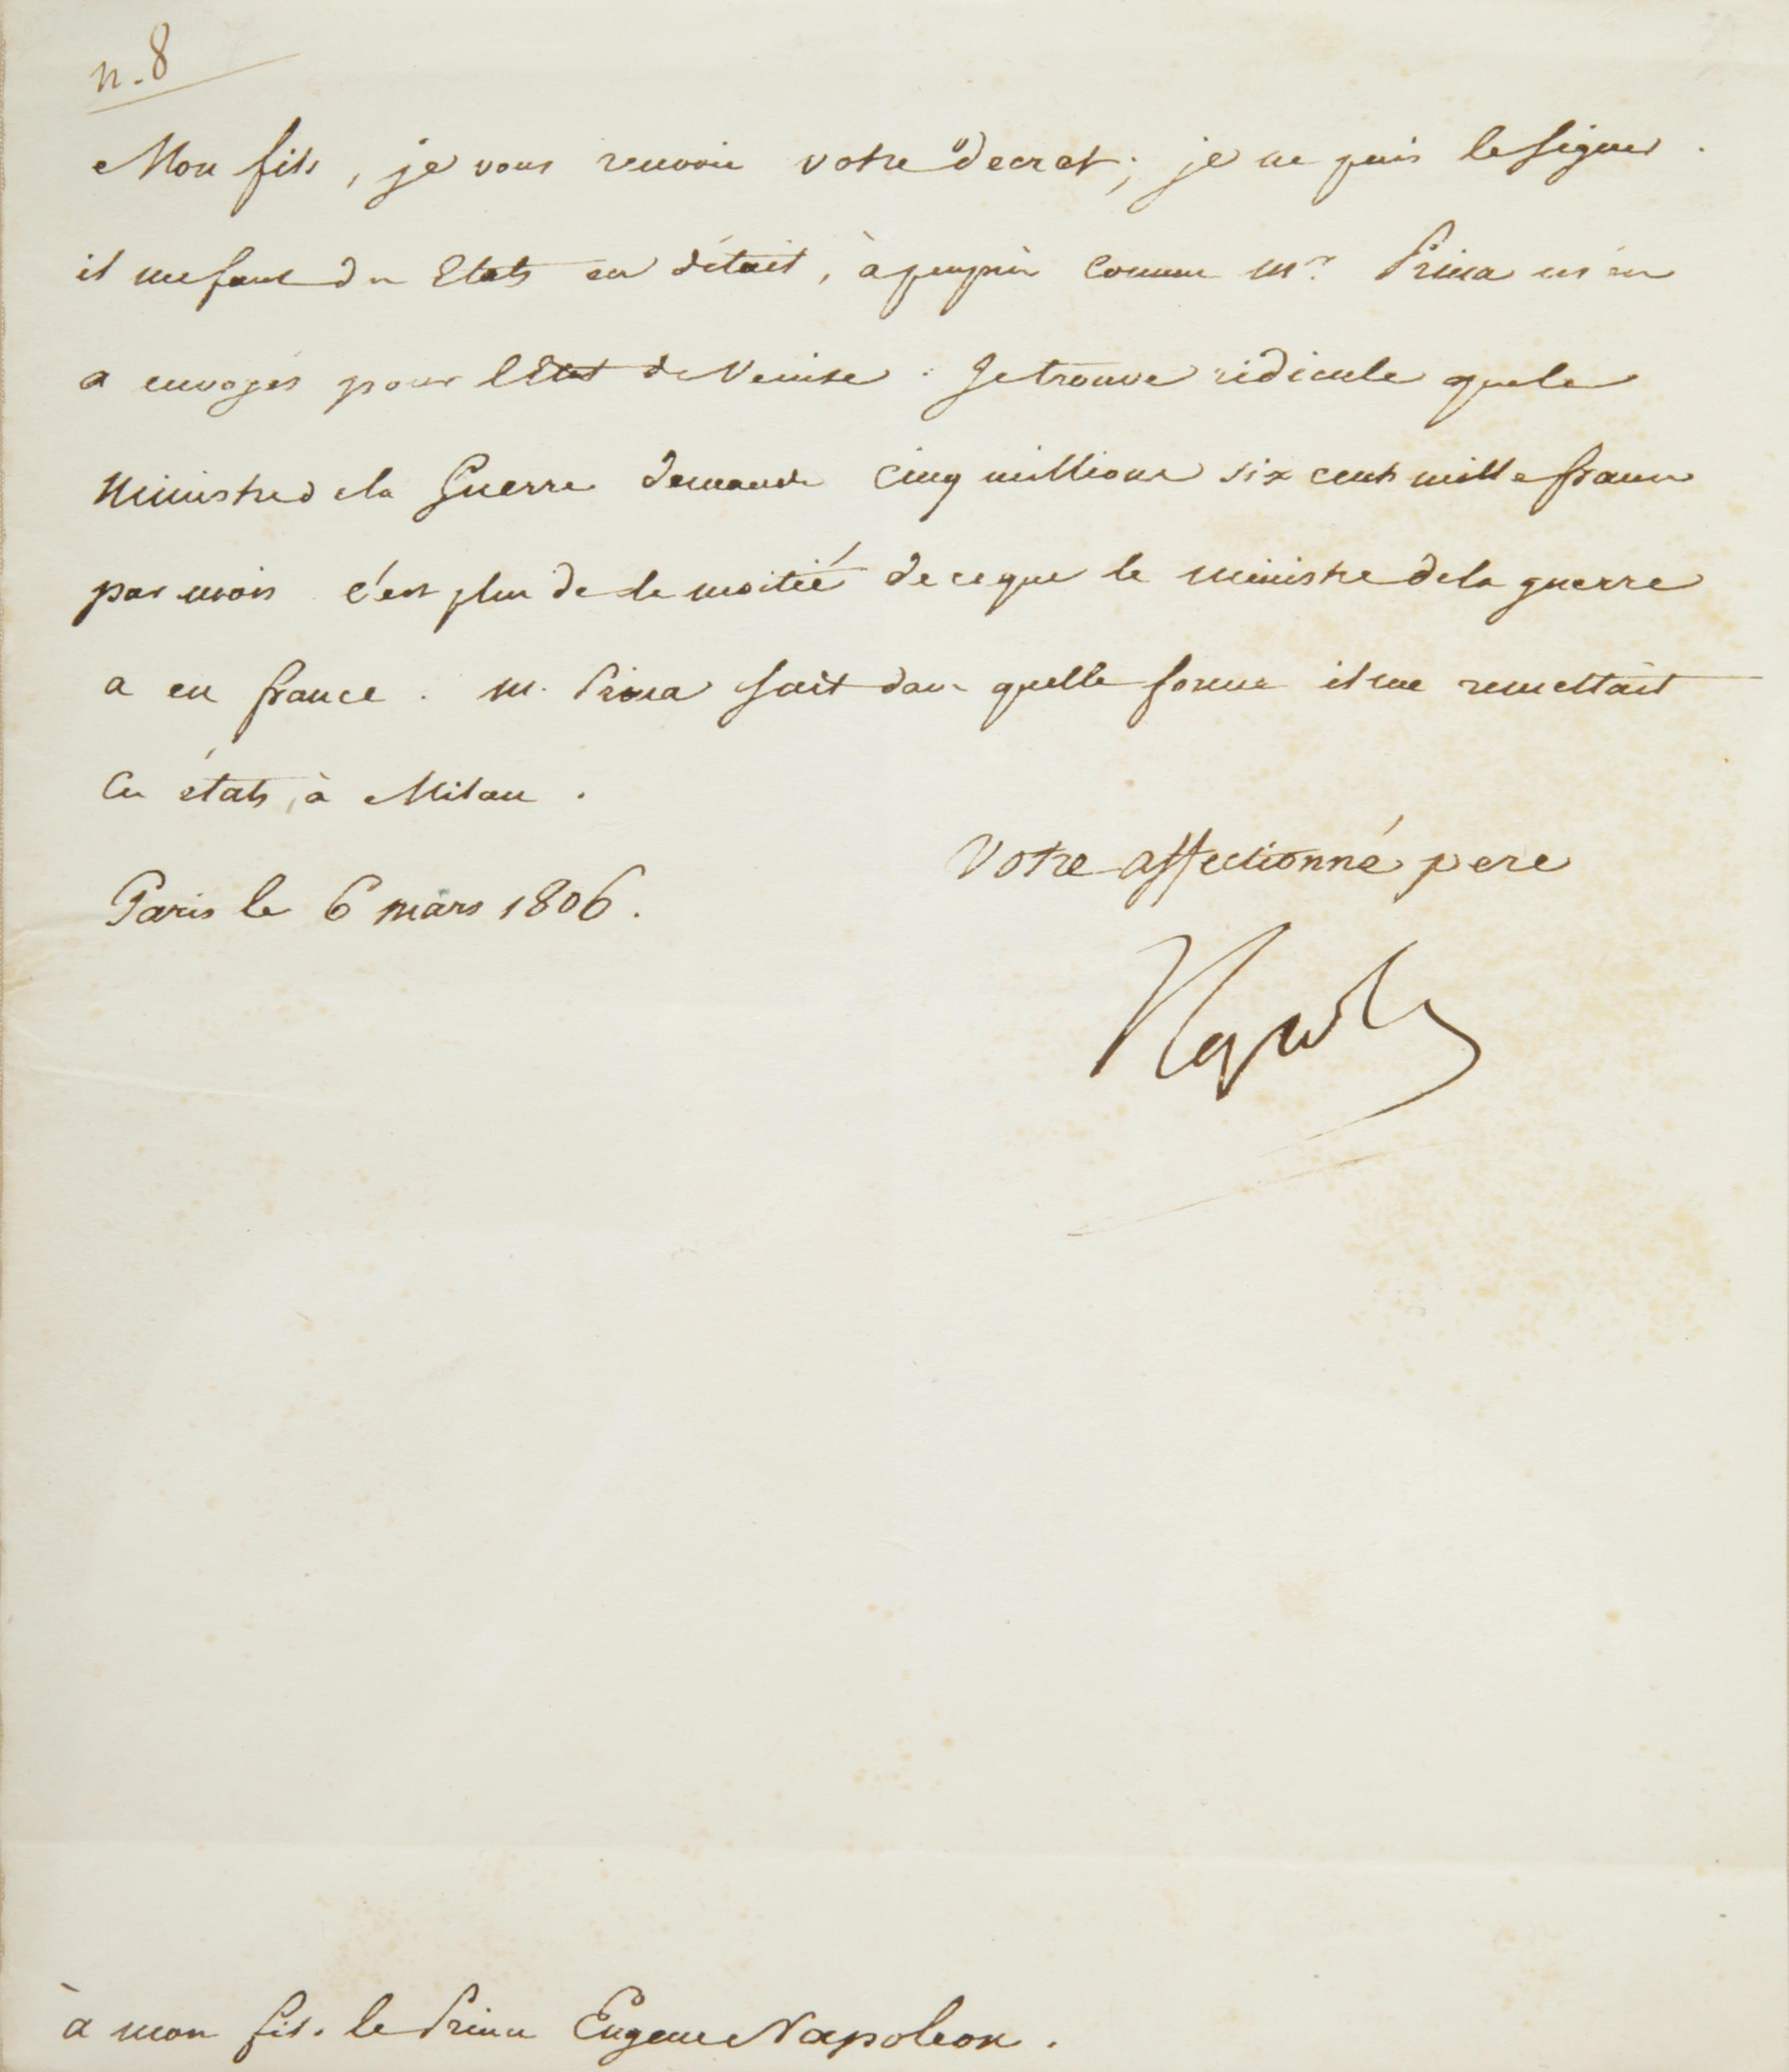 n. 8
Mon fils, je vous renvoie votre decret; je ne puis le signer.
il me faut des Etats en détail, à peu près comme Mr. Prina m'en
a envoyés pour l'Etat de Venise. Je trouve ridicule que le
Ministre de la Guerre demande cinq millions six cent mille francs
par mois c'est plus de la moitié de ce que le ministre de la guerre
a en france. M. Prina sait dans quelle forme il me remettait
Ces états, à Milan.
Votre affectionné pere
Paris le 6 mars 1806.
Napole
à mon fils. le Prince Eugene Napoleon.